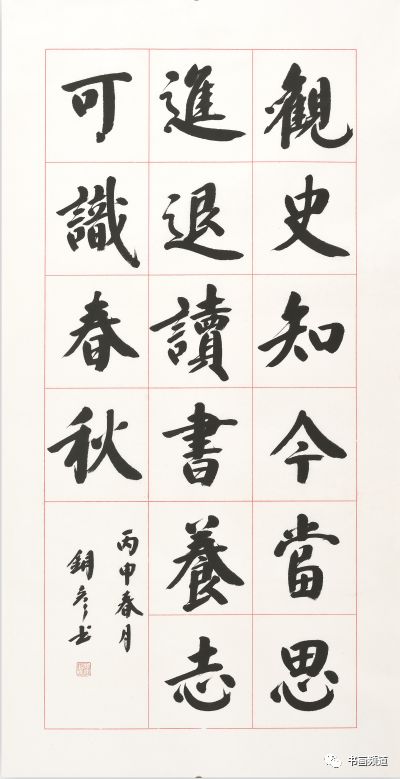 觀史知今當思
進退讀書養志
可識春秋
丙申春月
书画频道